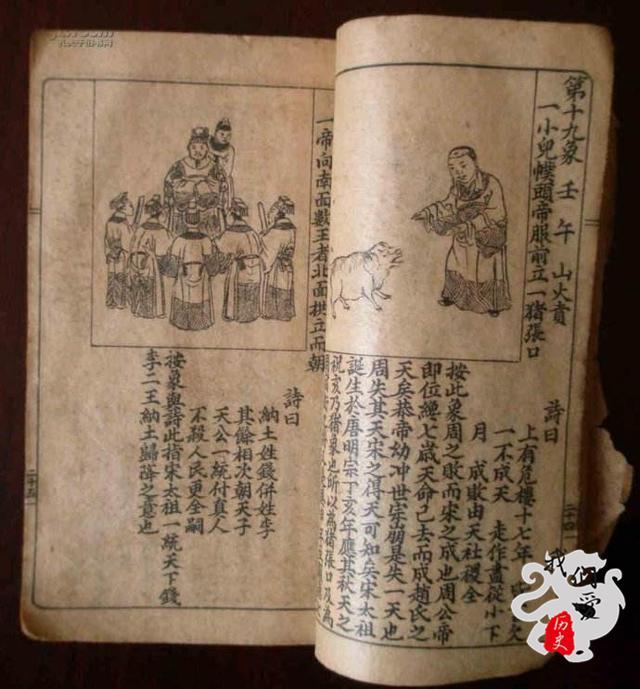 第十九象 壬午 山火賁
一小兒幞頭帝服前立一猪張口
詩曰
上有危樓十七年
一不成天 走作盡從小下
月 成敗由天社稷全
按此象周之敗而宋之成也周公帝
即位經七歲天命已去而成趙氏之
天矣恭帝幼冲世宗崩是失一天也
周失其天宋之得天可知矣宋太祖
誕生於唐明宗丁亥年應其秋天之
祝亥乃猪象也所以為猪張口及為
二十四
一帝向南面數王者北面拱立而朝
詩曰
納土姓錢併姓李
其餘相次朝天子
天公一統付真人
不殺人民更全嗣
按象與詩此指宋太祖一統天下錢
李二王納土歸降之意也
二十五
我们爱
历史